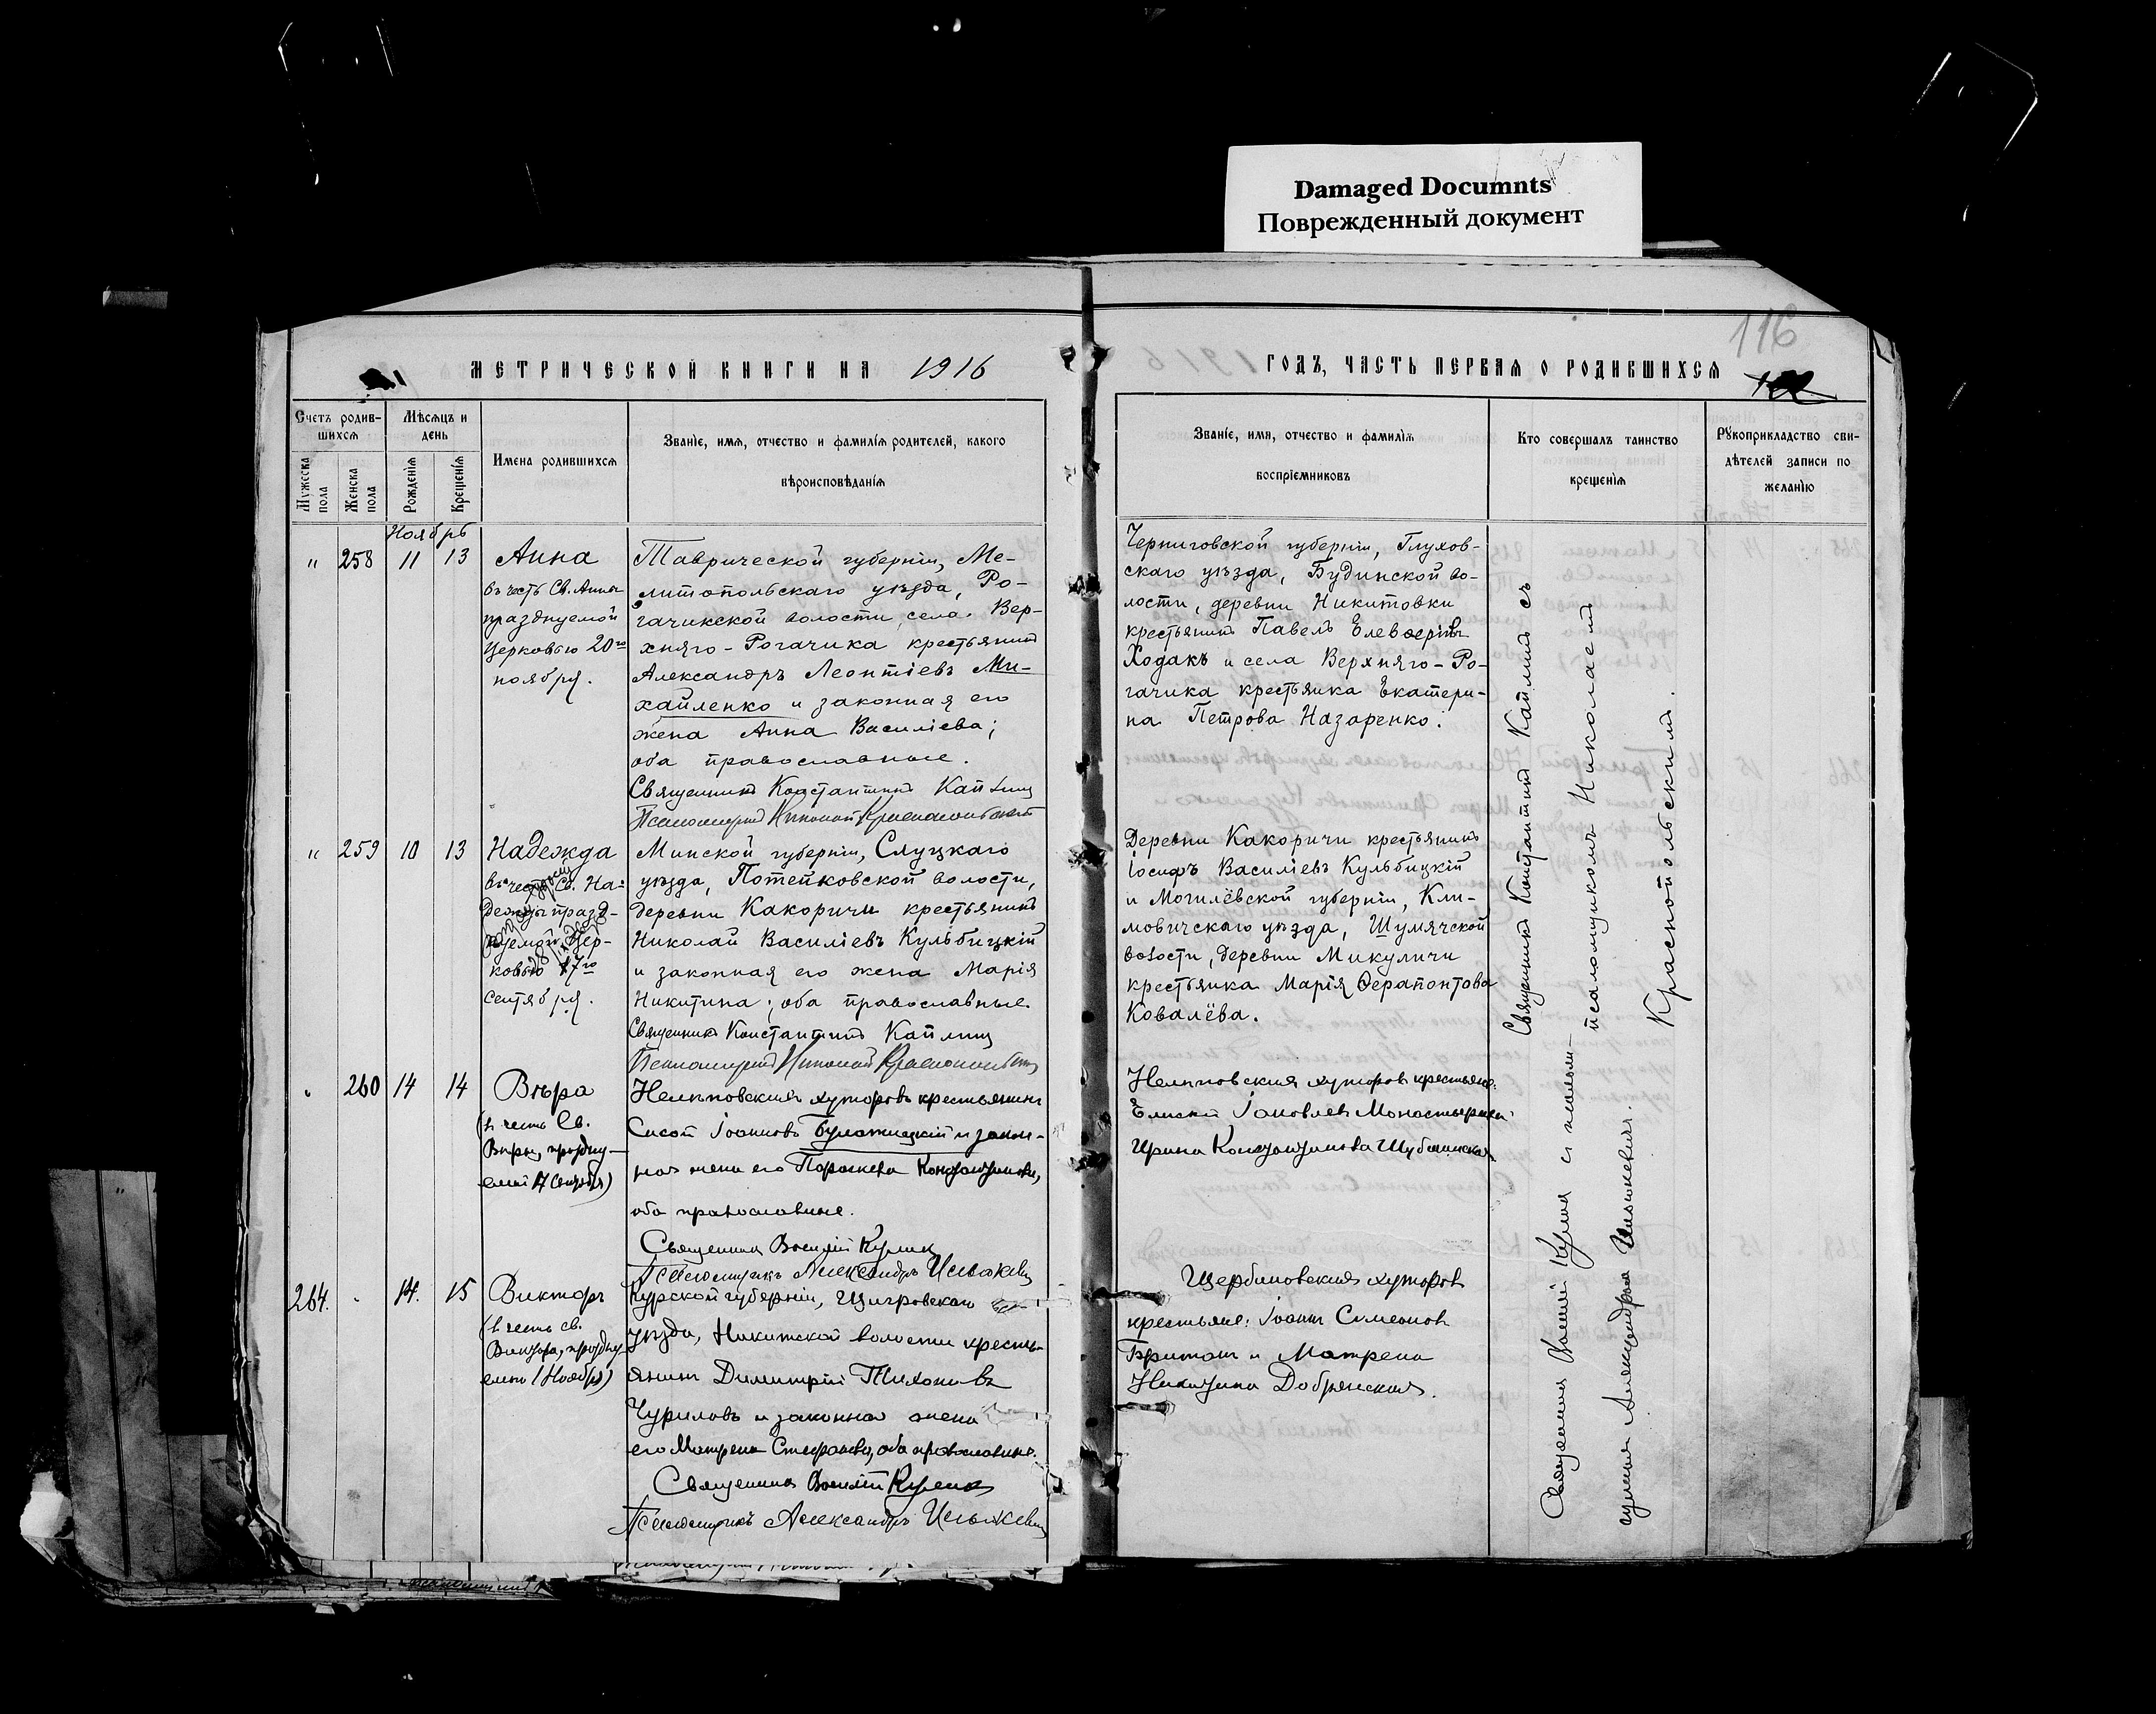 Damaged Documnts
Поврежденный документ
116
МЕТРИЧЕСКОЙ КНИГИ НА 1916
ГОДЪ, ЧАСТЬ ПЕРВАЯ О РОДИВШИХСЯ
Счетъ родив-
шихся
Мужеска
пола
Женска
пола
Мѣсяцъ и
день
Рожденія
Крещенія
Имена родившихся
Званіе, имя, отчество и фамилія родителей, какого
вѣроисповѣданія
Званіе, имя, отчество и фамилія
воспріемниковъ
Кто совершалъ таинство
крещенія
Рукоприкладство сви-
дѣтелей записи по
желанію
Ноябрь
" 258 11 13
Анна
въ честь Св. Анны
празднуемой
Церковью 20го
ноября.
Таврической губерніи, Ме-
литопольскаго уѣзда, Ро-
гачикской волости, села Вер-
хняго-Рогачика крестьянинъ
Александръ Леонтіевъ Ми-
хайленко и законная его
жена Анна Василіева;
оба православные.
Священникъ Константинъ Каплинъ
Псаломщикъ Николай Краснопольскій
Черниговской губерніи, Глухов-
скаго уѣзда, Будинской во-
лости, деревни Никитовки
крестьянинъ Павелъ Елевѳеріевъ
Ходакъ и села Верхняго-Ро-
гачика крестьянка Екатери-
на Петрова Назаренко.
" 259 10 13
Надежда
въ честь Св. На-
дежды празд-
нуемой Цер-
ковью 17го
сентября.
Минской губерніи, Слуцкаго
уѣзда, Потейковской волости,
деревни Какоричи крестьянинъ
Николай Василіевъ Кульбицкій
и законная его жена Марія
Никитина; оба православные
Священникъ Константинъ Каплинъ
Псаломщикъ Николай Краснопольскій
Деревни Какоричи крестьянинъ
Іосифъ Василіевъ Кульбицкій
и Могилёвской губерніи, Кли-
мовичскаго уѣзда, Шумячской
волости, деревни Микуличи
крестьянка Марія Ѳерапонтова
Ковалёва.
Священникъ Константинъ Каплинъ съ
псаломщикомъ Николаемъ
Краснопольскимъ.
260 14 14
Вѣра
(въ честь Св.
Вѣры, праздну-
емой 17 Сентября)
Нелѣповскихъ хуторовъ крестьянинъ
Сисой Іоанновъ и закон-
ная жена его Параскева Константинова,
оба православные.
Священникъ Василій Куликъ
Псаломщикъ Александръ Ильяшевичъ
Нелѣповскихъ хуторовъ крестьяне:
Елисей Іаковлевъ Монастырскій
Ирина Константинова
264. 14. 15
Викторъ
(въ честь св.
Виктора, праздну-
емого 11 Ноября)
Курской губерніи, Щигровскаго
уѣзда, Никитской волости кресть-
янинъ Димитрій Тихоновъ
Чуриловъ и законная жена
его Матрена Стефанова, оба православные.
Священникъ Василій Куликъ
Псаломщикъ Александръ Ильяшевичъ
Щербиновскихъ хуторовъ
крестьяне: Іоаннъ Симеоновъ
Британъ и Матрена
Никитина Добрянская.
Священникъ Василій Куликъ съ псалом-
щикомъ Александромъ Ильяшевичемъ.